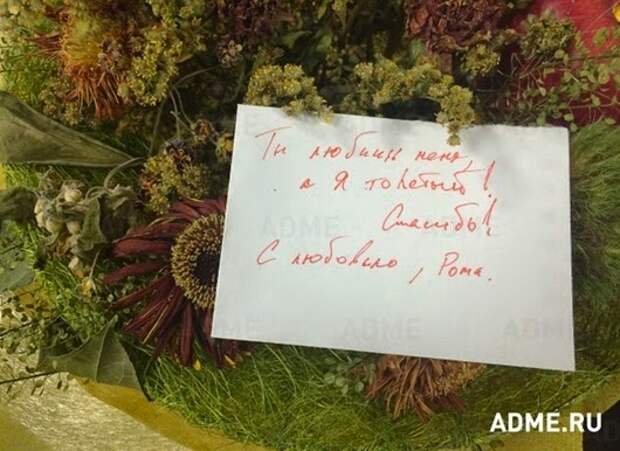 Ты любишь меня,
а Я толстый!
Спасибо!
С любовью, Рома.
ADME
ADME
ADME
ADME.RU